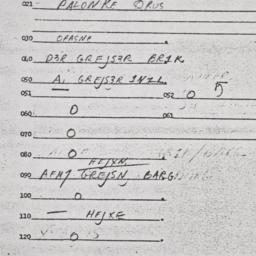 021 PALONKE ORUS
030 OPASNA
040 DER GREJSER BRIK
050 A. GREJSER INZL
051 — 052 O 5
060 O 061
070 O
080 O
HEJXM
090 AFMJ GREJSN BARG
100 O
110 — HEJKE
120 O